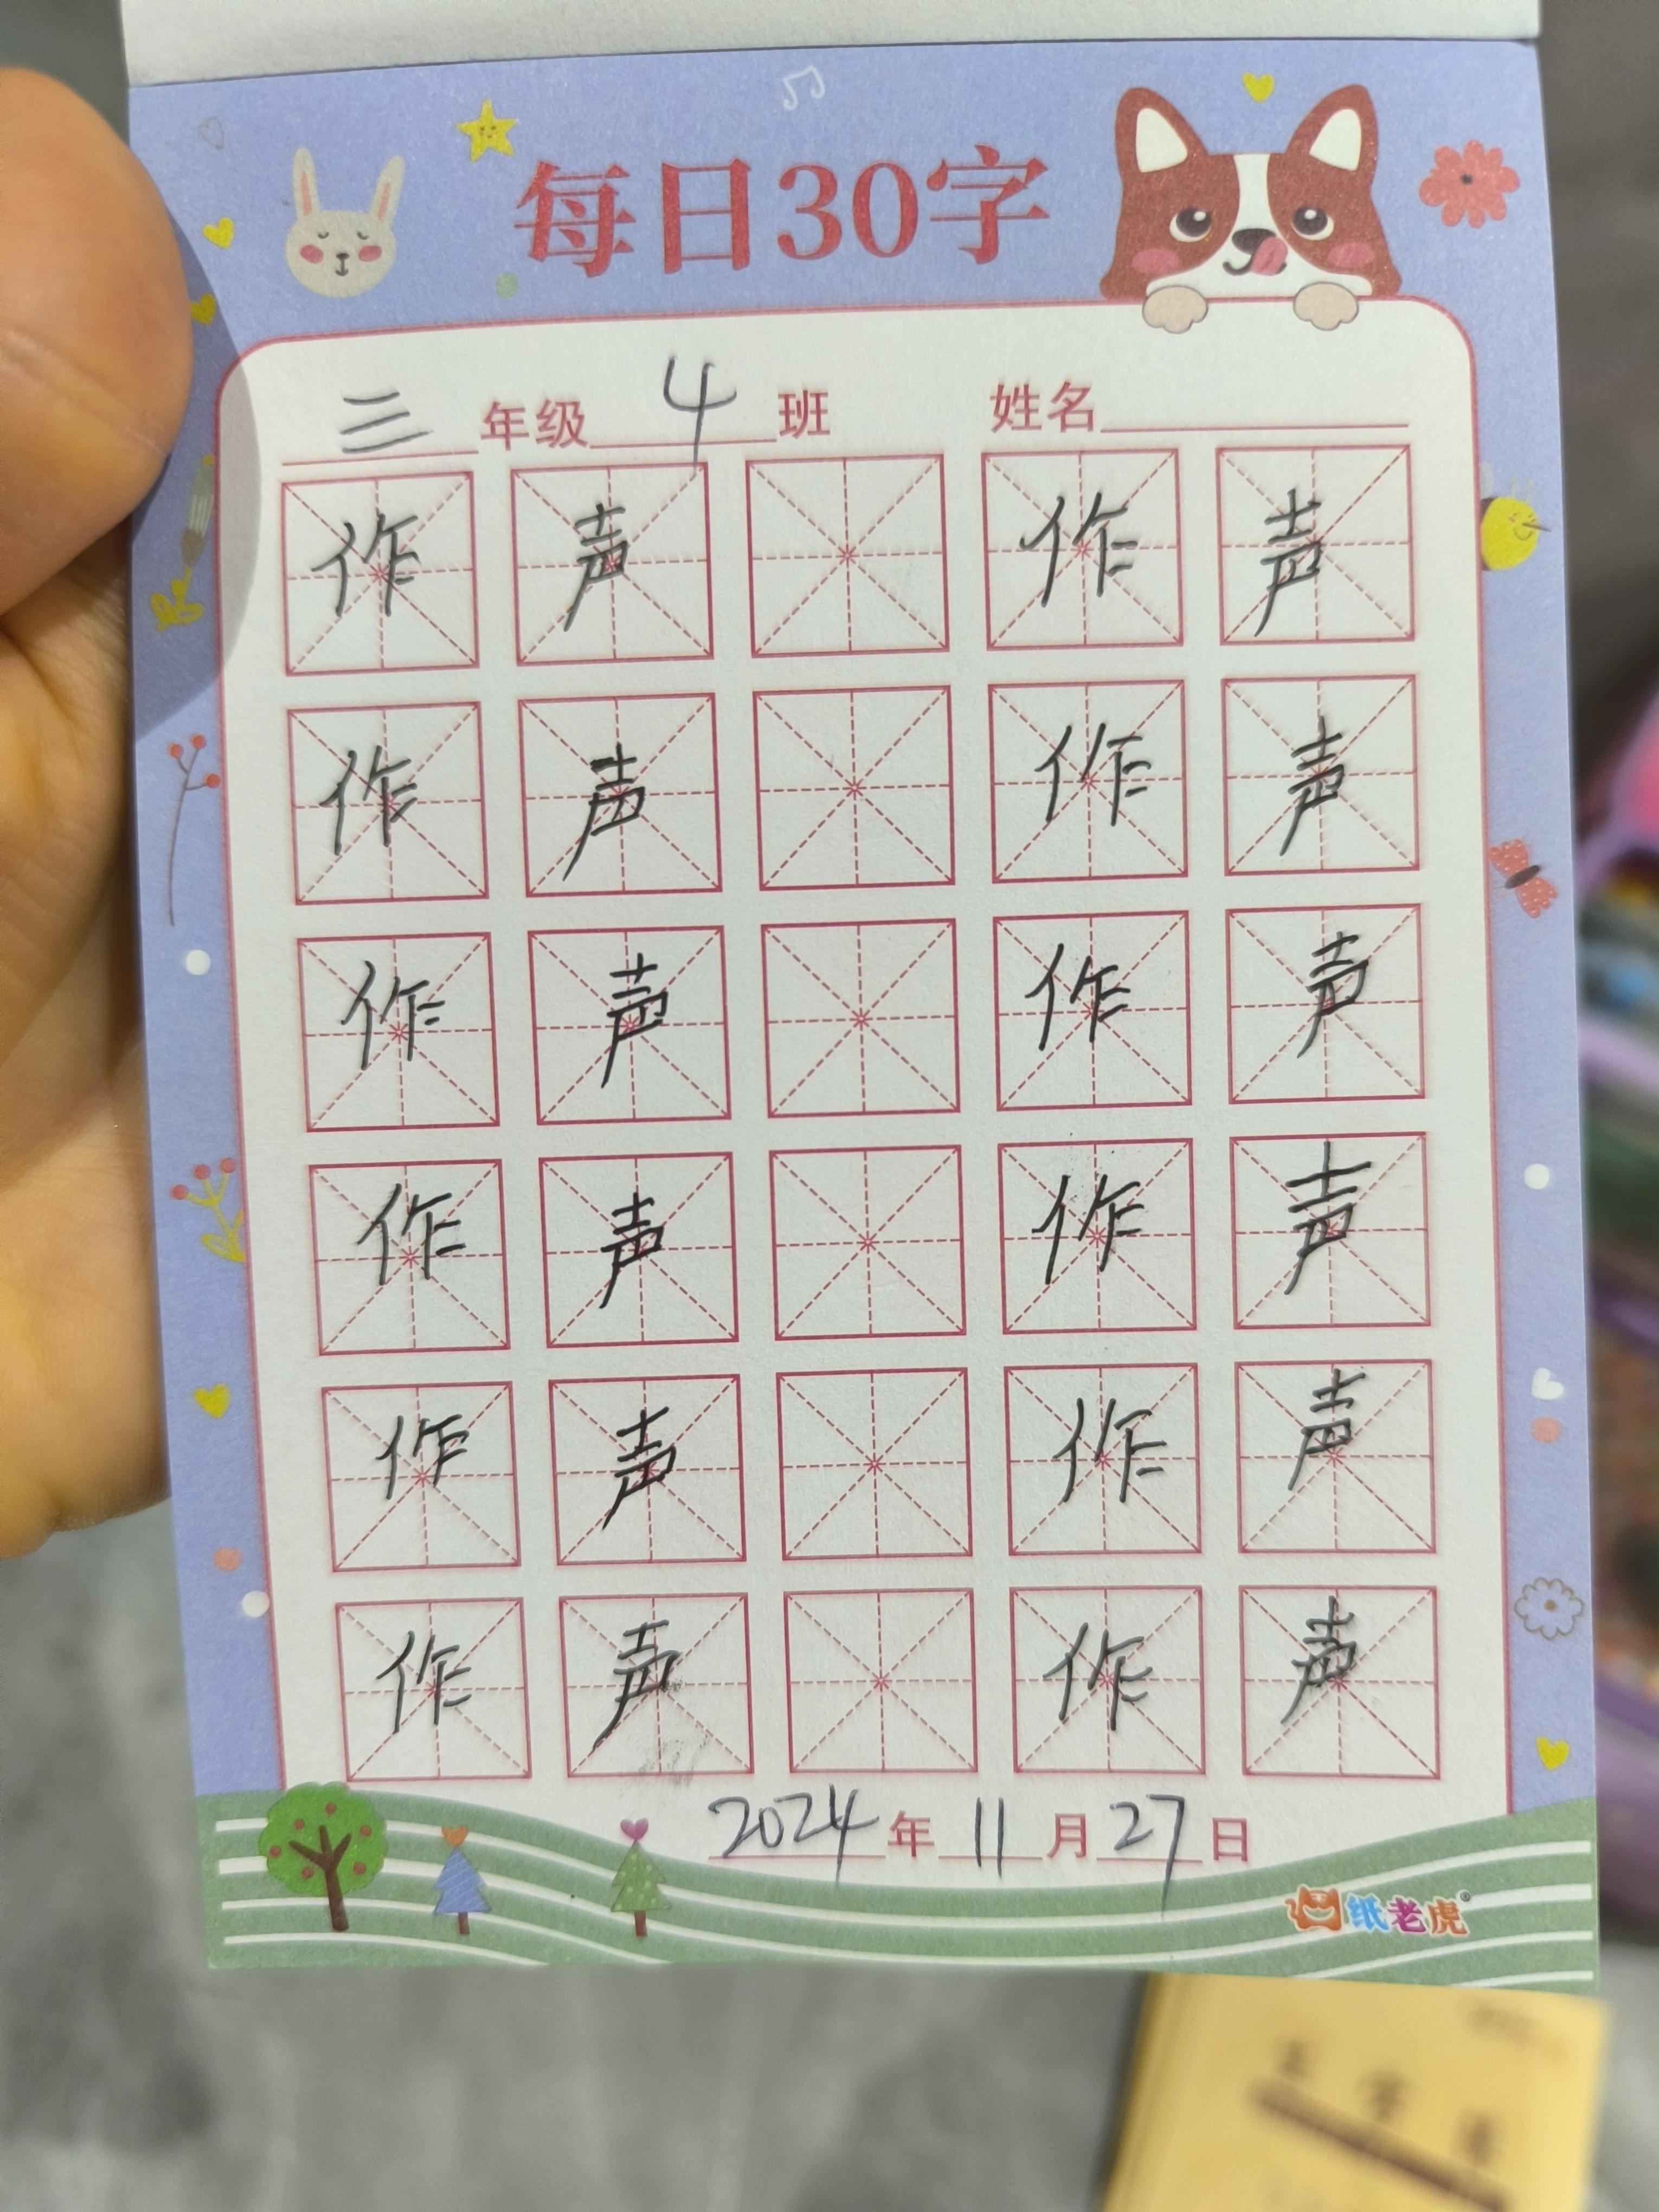 每日30字
三年级 4 班 姓名
作 声 作 声
作 声 作 声
作 声 作 声
作 声 作 声
作 声 作 声
作 声 作 声
2024年11月27日
纸老虎®